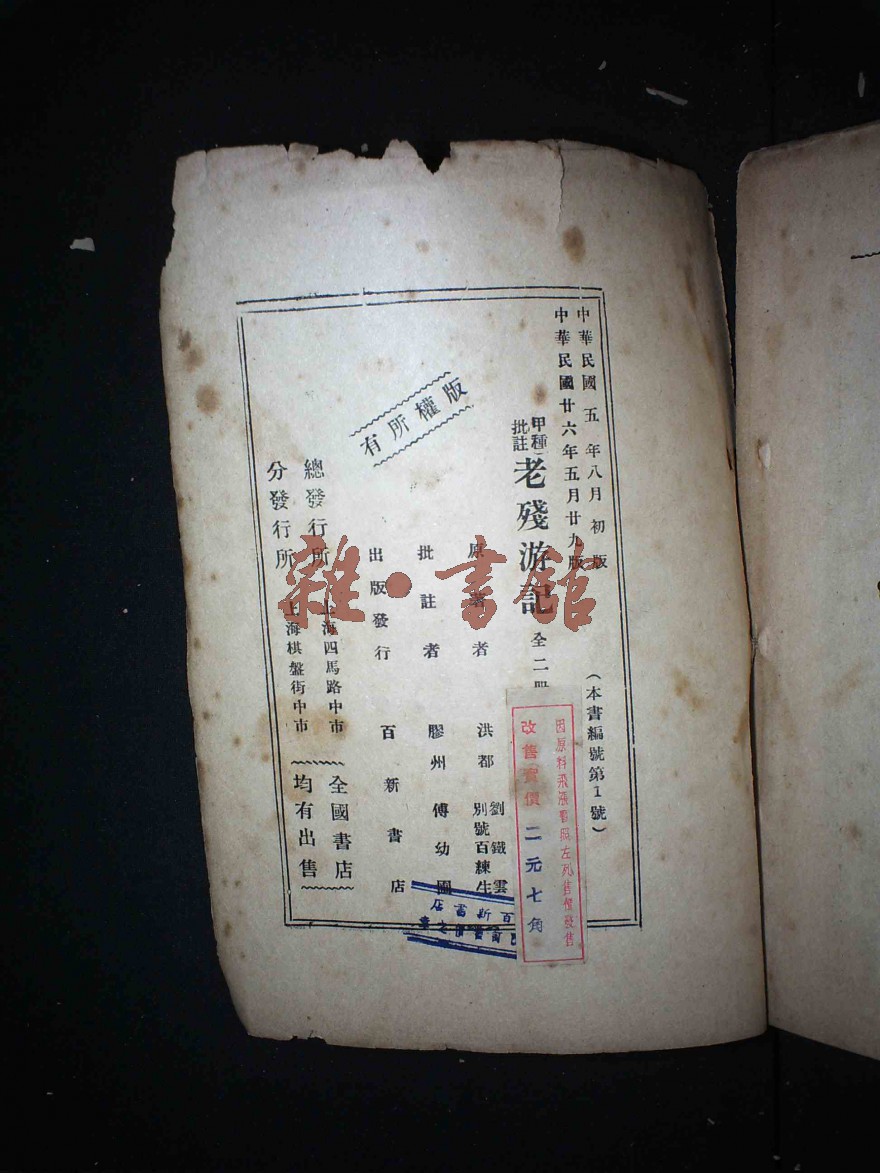 中華民國五年八月初版
中華民國廿六年五月廿九版
（本書編號第1號）
甲種
批註
老殘游記
全二冊
原著者
洪都
劉鐵雲
別號百練生
批註者
膠州傅幼圃
出版發行
百新書店
總發行所
上海四馬路中市
分發行所
上海棋盤街中市
全國書店
均有出售
版權所有
因原料飛漲暫照左列售價發售
改售實價二元七角
百新書店
雜·書館